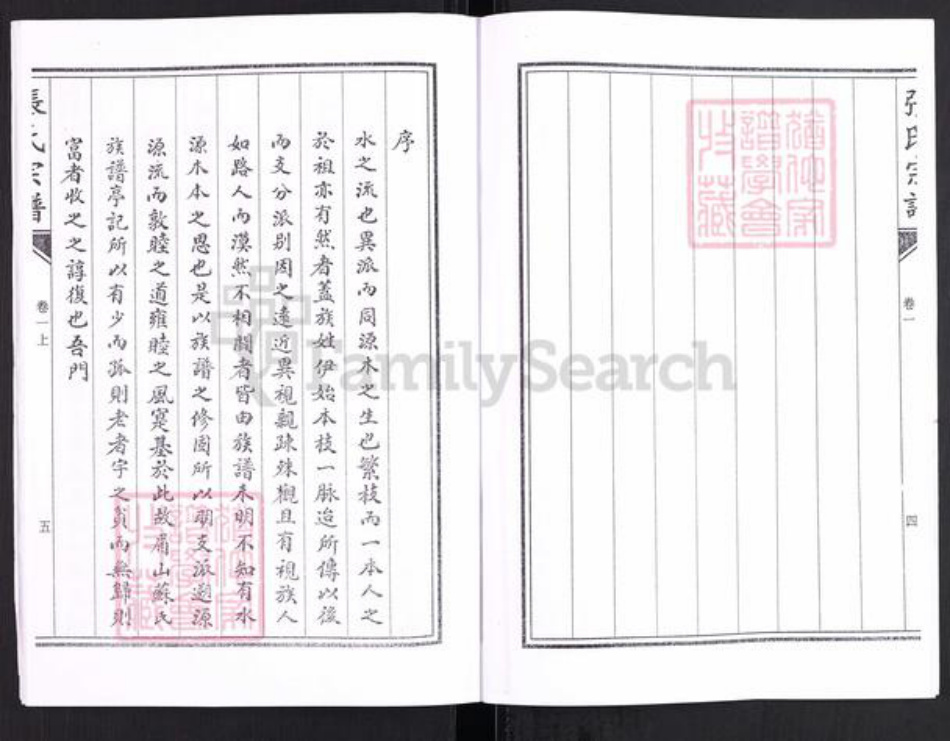 張氏宗譜
卷一
四
猶他家譜學會收藏
序
水之流也異派而同源木之生也繁枝而一本人之
於祖亦有然者蓋族姓伊始本枝一脉迨所傳以後
而支分派别因之遠近異視親疎殊觀且有視族人
如路人而漠然不相關者皆由族譜未明不知有水
源木本之思也是以族譜之修固所以明支派遡源
源流而敦睦之道雍睦之風寔基於此故眉山蘇氏
族譜亭記所以有少而孤則老者字之貧而無歸則
富者收之之諄復也吾門
張氏宗譜
卷一上
五
猶他家譜學會收藏
FamilySearch